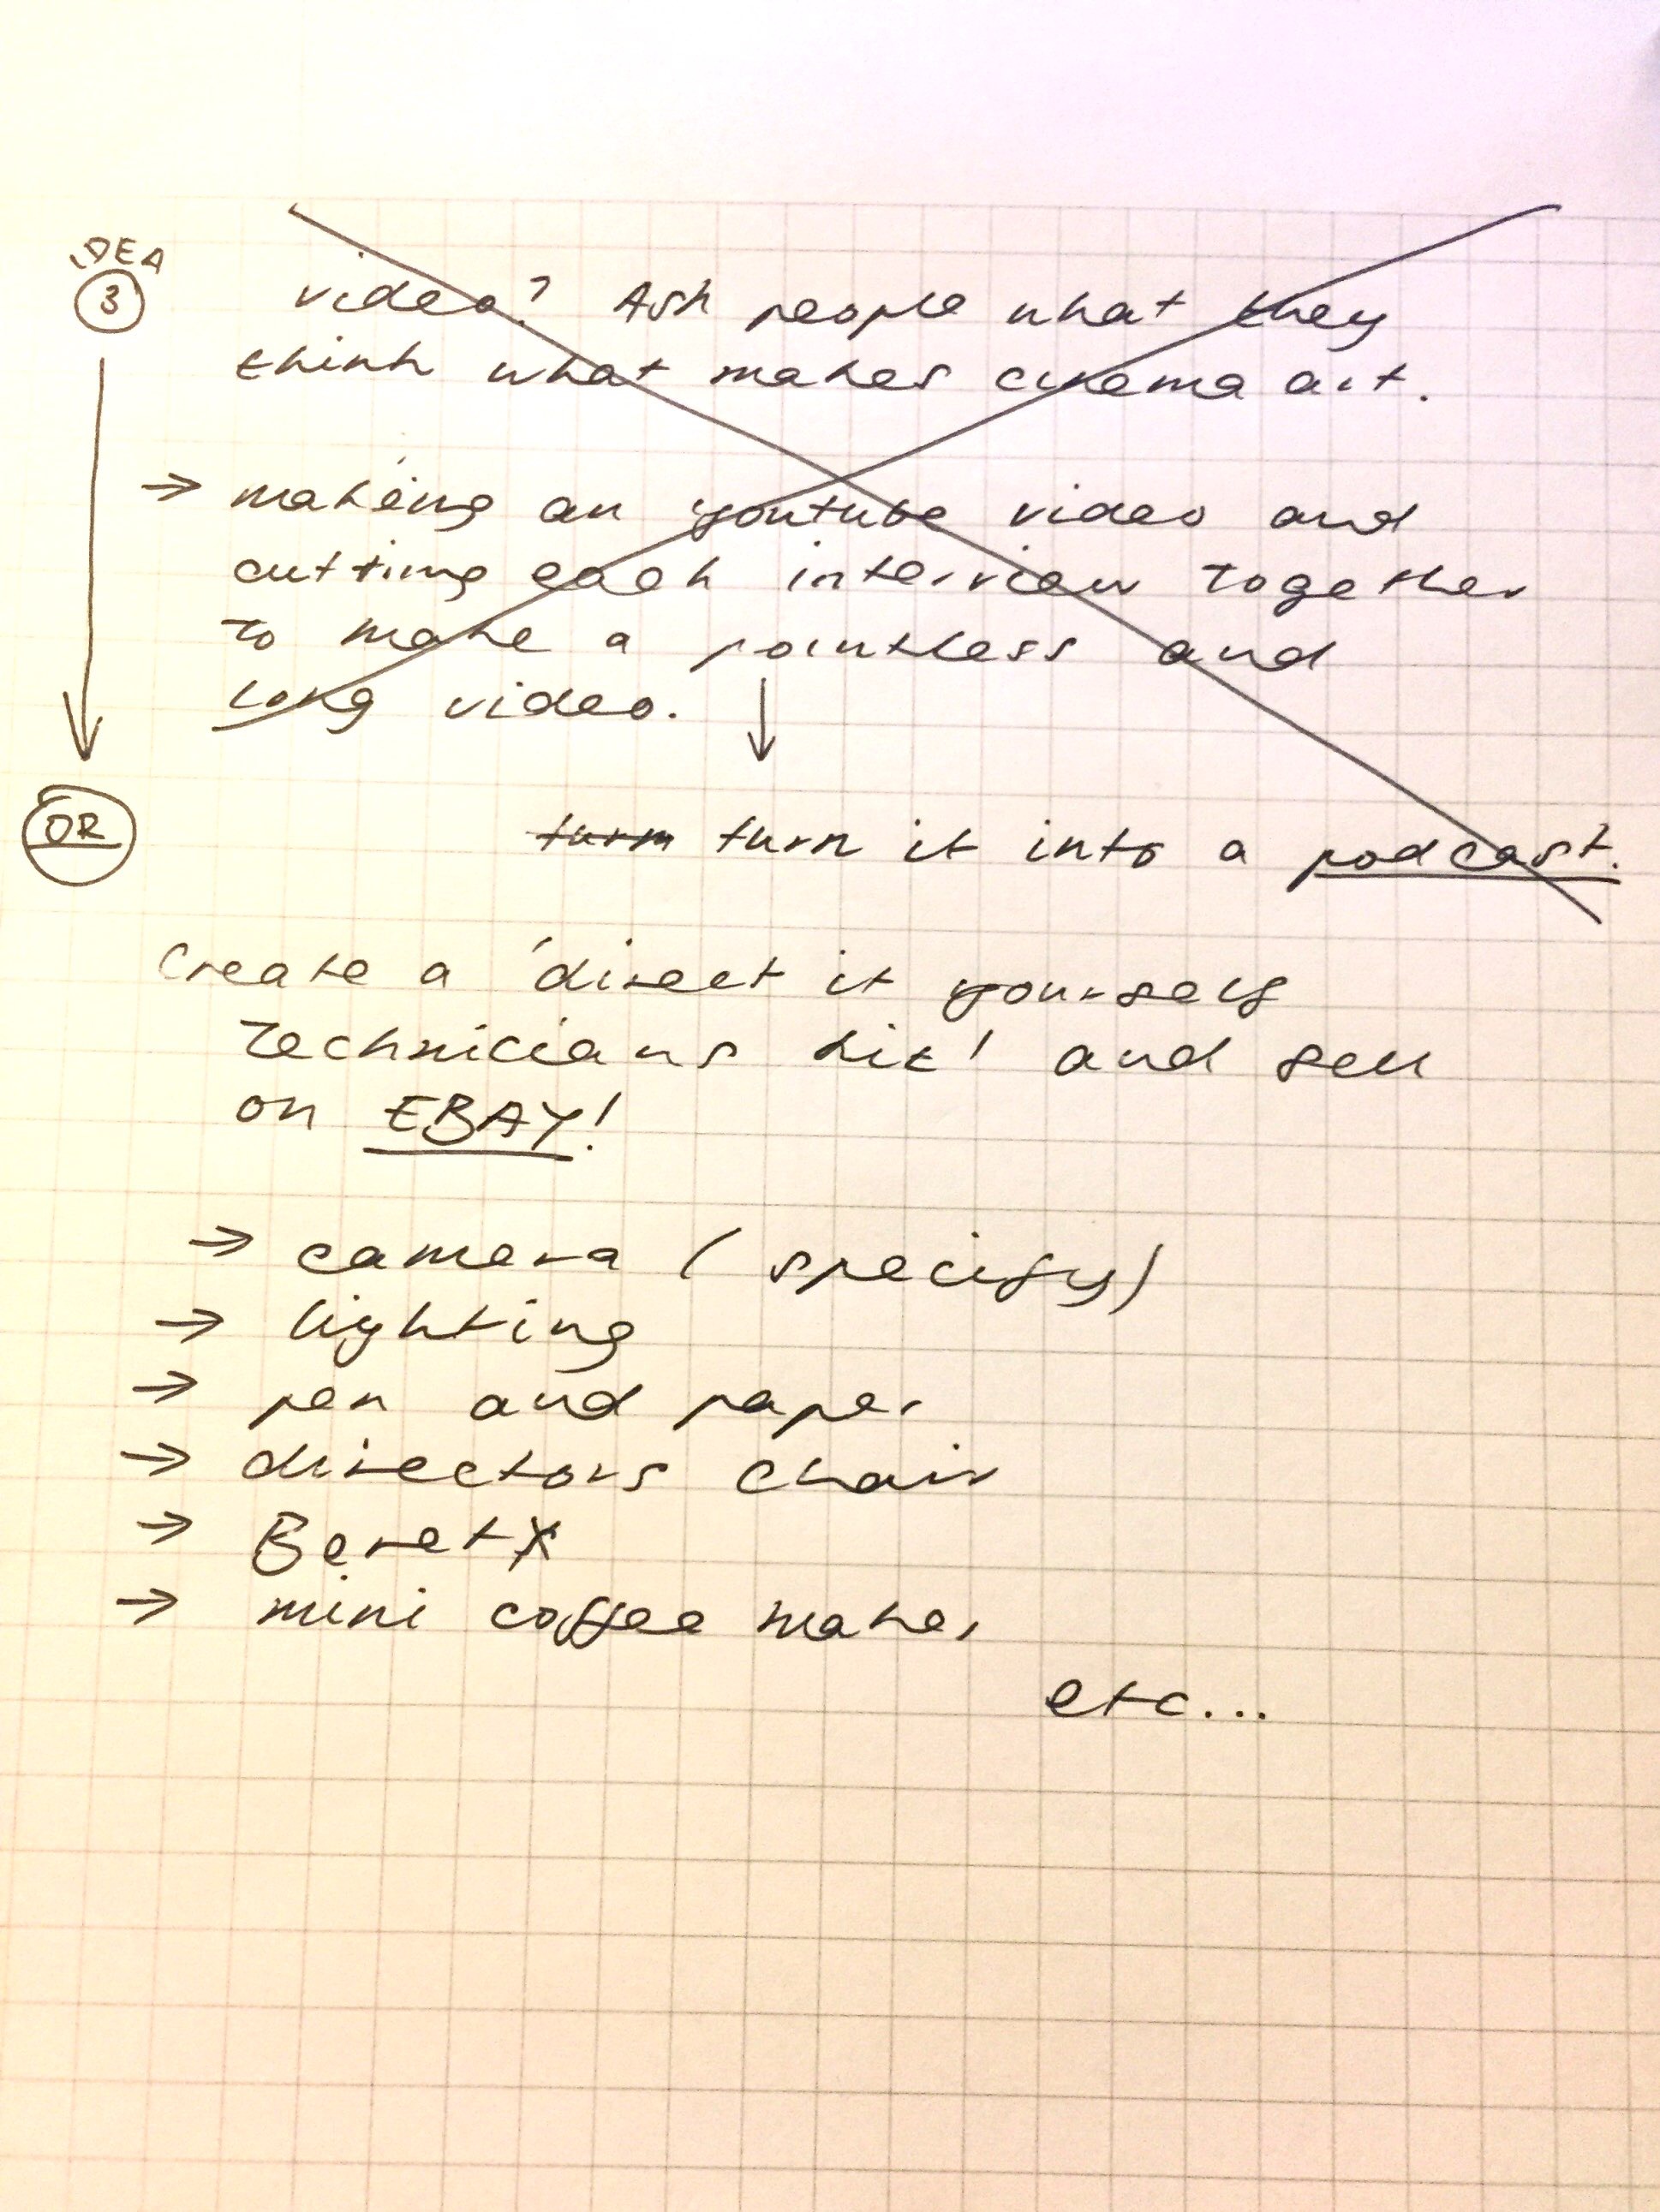 IDEA
3
video? Ask people what they
think what makes cinema art.
→ making an youtube video and
cutting each interview together
to make a pointless and
long video.
↓
OR
turm turn it into a podcast.
Create a 'direct it yourself
technicians kit' and sell
on EBAY!
→ camera (specify)
→ lighting
→ pen and paper
→ directors chair
→ Beret
→ mini coffee maker
etc...